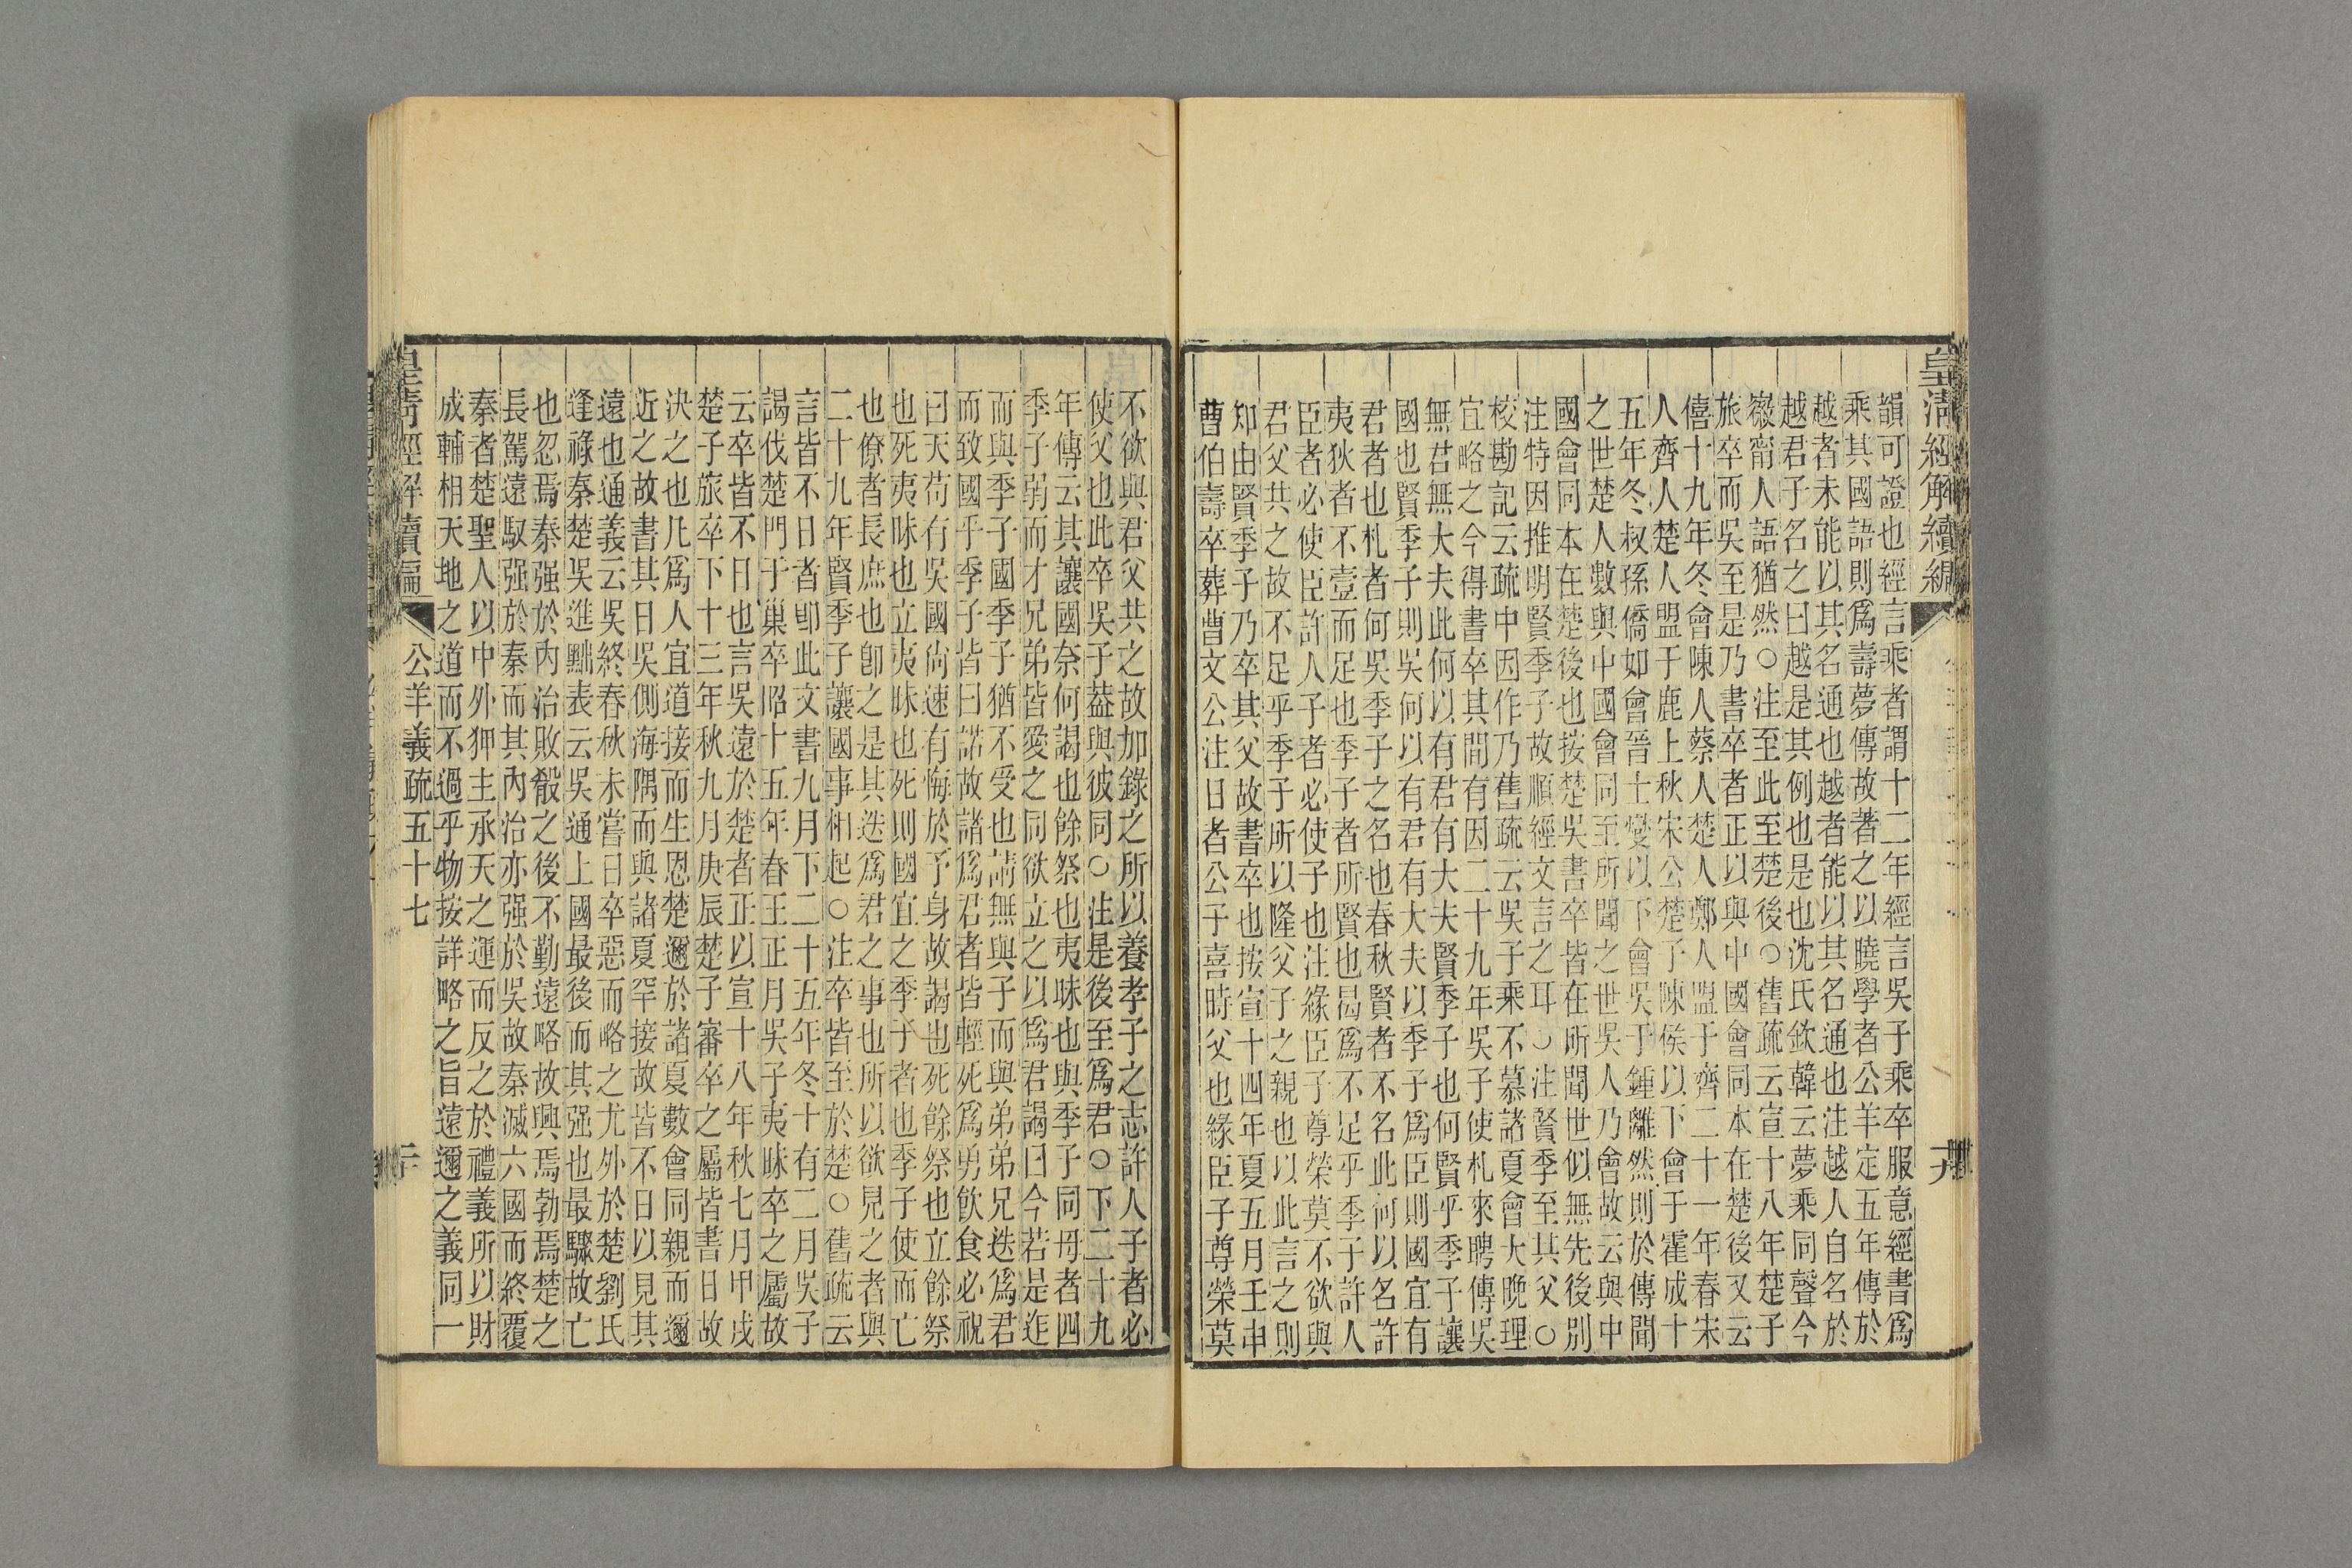 皇清經解續編
十九
韻可證也經言乘者謂十二年經言吳子乘卒服意經書爲
乘其國語則爲壽夢傳故著之以曉學者公羊定五年傳於
越者未能以其名通也越者能以其名通也注越人自名於
越君子名之曰越是其例也是也沈氏欽韓云夢乘同聲今
寱甯人語猶然○注至此至楚後○舊疏云宣十八年楚子
旅卒而吳至是乃書卒者正以與中國會同本在楚後又云
僖十九年冬會陳人蔡人楚人鄭人盟于齊二十一年春宋
人齊人楚人盟于鹿上秋宋公楚子陳侯以下會于霍成十
五年冬叔孫僑如會晉士燮以下會吳于鍾離然則於傳聞
之世楚人數與中國會同至所聞之世吳人乃會故云與中
國會同本在楚後也按楚吳書卒皆在所聞世似無先後別
注特因推明賢季子故順經文言之耳○注賢季至其父○
校勘記云疏中因作乃舊疏云吳子乘不慕諸夏會大晚理
宜略之今得書卒其間有因二十九年吳子使札來聘傳吳
無君無大夫此何以有君有大夫賢季子也何賢乎季子讓
國也賢季子則吳何以有君有大夫以季子爲臣則國宜有
君者也札者何吳季子之名也春秋賢者不名此何以名許
夷狄者不壹而足也季子者所賢也曷爲不足乎季子許人
臣者必使臣許人子者必使子也注緣臣子尊榮莫不欲與
君父共之故不足乎季子所以隆父子之親也以此言之則
知由賢季子乃卒其父故書卒也按宣十四年夏五月壬申
曹伯壽卒葬曹文公注日者公子喜時父也緣臣子尊榮莫
不欲與君父共之故加錄之所以養孝子之志許人子者必
使父也此卒吳子葢與彼同○注是後至爲君○下二十九
年傳云其讓國奈何謁也餘祭也夷昧也與季子同母者四
季子弱而才兄弟皆愛之同欲立之以爲君謁曰今若是迮
而與季子國季子猶不受也請無與子而與弟弟兄迭爲君
而致國乎季子皆曰諾故諸爲君者皆輕死爲勇飲食必祝
曰天苟有吳國尙速有悔於予身故謁也死餘祭也立餘祭
也死夷昧也立夷昧也死則國宜之季子者也季子使而亡
也僚者長庶也卽之是其迭爲君之事也所以欲見之者與
二十九年賢季子讓國事相起○注卒皆至於楚○舊疏云
言皆不日者卽此文書九月下二十五年冬十有二月吳子
謁伐楚門于巢卒昭十五年春王正月吳子夷昧卒之屬故
云卒皆不日也言吳遠於楚者正以宣十八年秋七月甲戌
楚子旅卒下十三年秋九月庚辰楚子審卒之屬皆書日故
決之也凡爲人宜道接而生恩楚邇於諸夏數會同親而邇
近之故書其日吳側海隅而與諸夏罕接故皆不日以見其
遠也通義云吳終春秋未嘗日卒惡而略之尤外於楚劉氏
逢祿秦楚吳進黜表云吳通上國最後而其强也最驟故亡
也忽焉秦强於內治敗殽之後不勤遠略故興焉勃焉楚之
長駕遠馭强於秦而其內治亦强於吳故秦滅六國而終覆
秦者楚聖人以中外狎主承天之運而反之於禮義所以財
成輔相天地之道而不過乎物按詳略之旨遠邇之義同一
皇清經解續編
公羊義疏五十七
二十